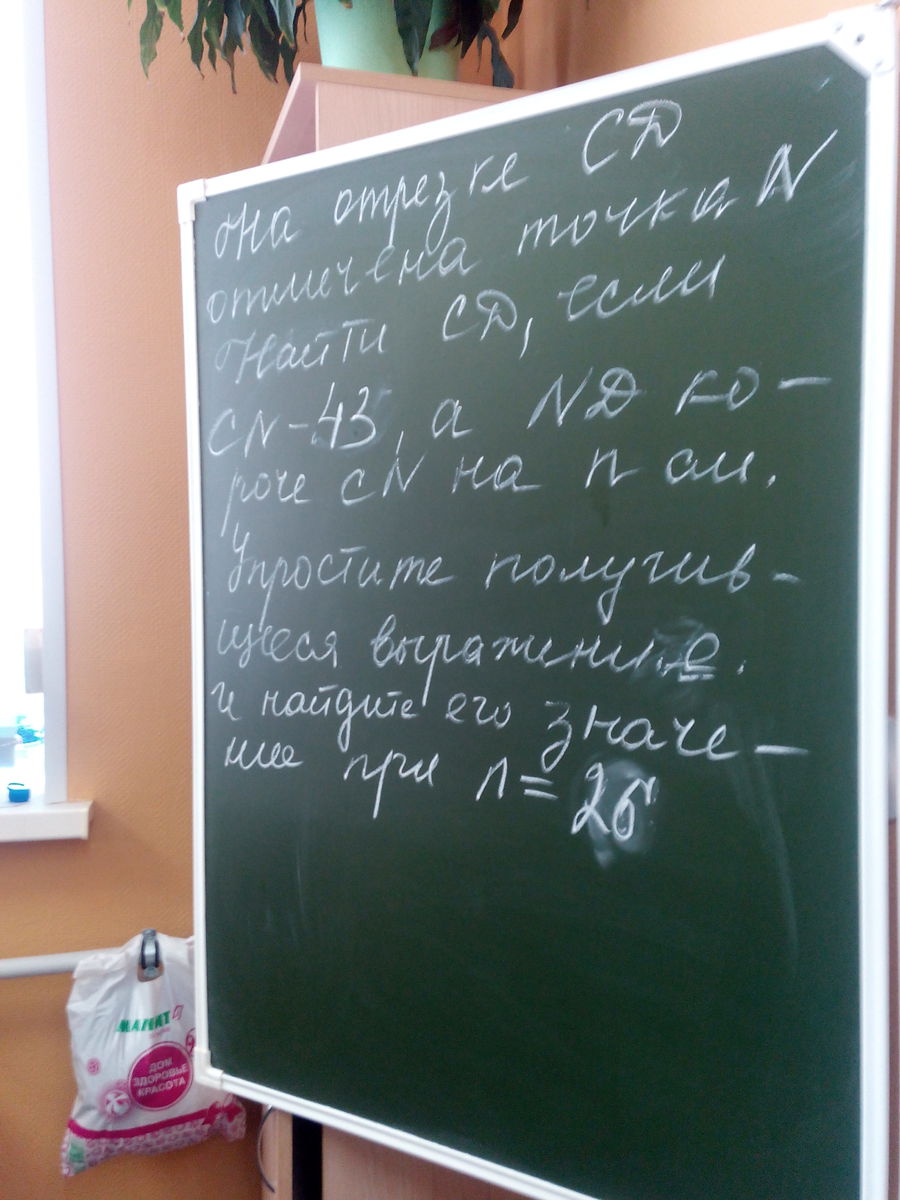 На отрезке СД
отмечена точка N
Найти СД, если
CN-43, а NД ко-
роче CN на n см.
Упростите получив-
щиеся выражение.
и найдите его значе-
ние при n=26
ДОМ
ЗДОРОВЬЕ
КРАСОТА